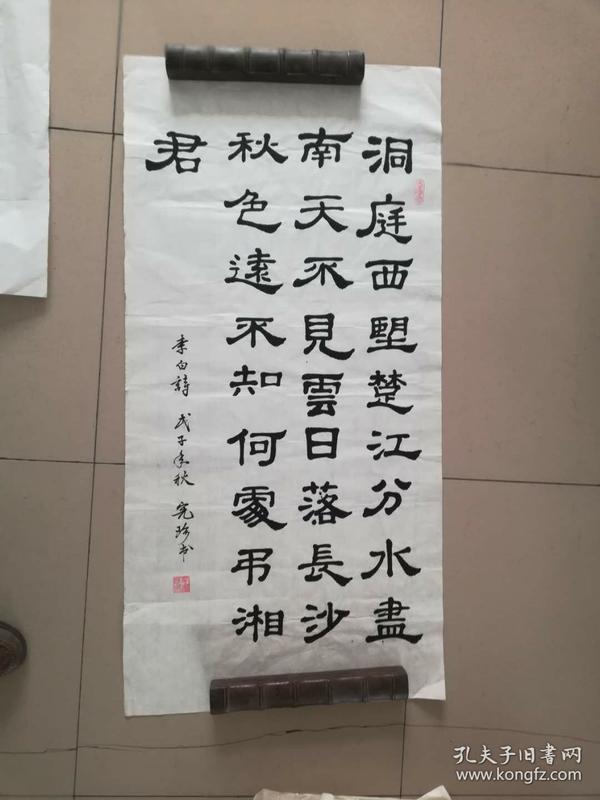 洞庭西朢楚江分水盡
南天不見雲日落長沙
秋色遠不知何處弔湘
君
李白詩 戊子年秋 寛珍书
孔夫子旧书网
www.kongfz.com